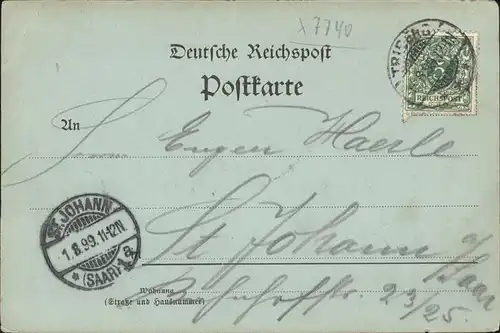 x 7740
TRIBERG
REICHSPOST
Deutsche Reichspost
Postkarte
An
S. Eugen Haerle
St Johann a/
Saar
ST. JOHANN
1.8.99. 11-12N
* (SAAR) 1 a
Wohnung
(Straße und Hausnummer)
Bahnhofstr. 23/25.